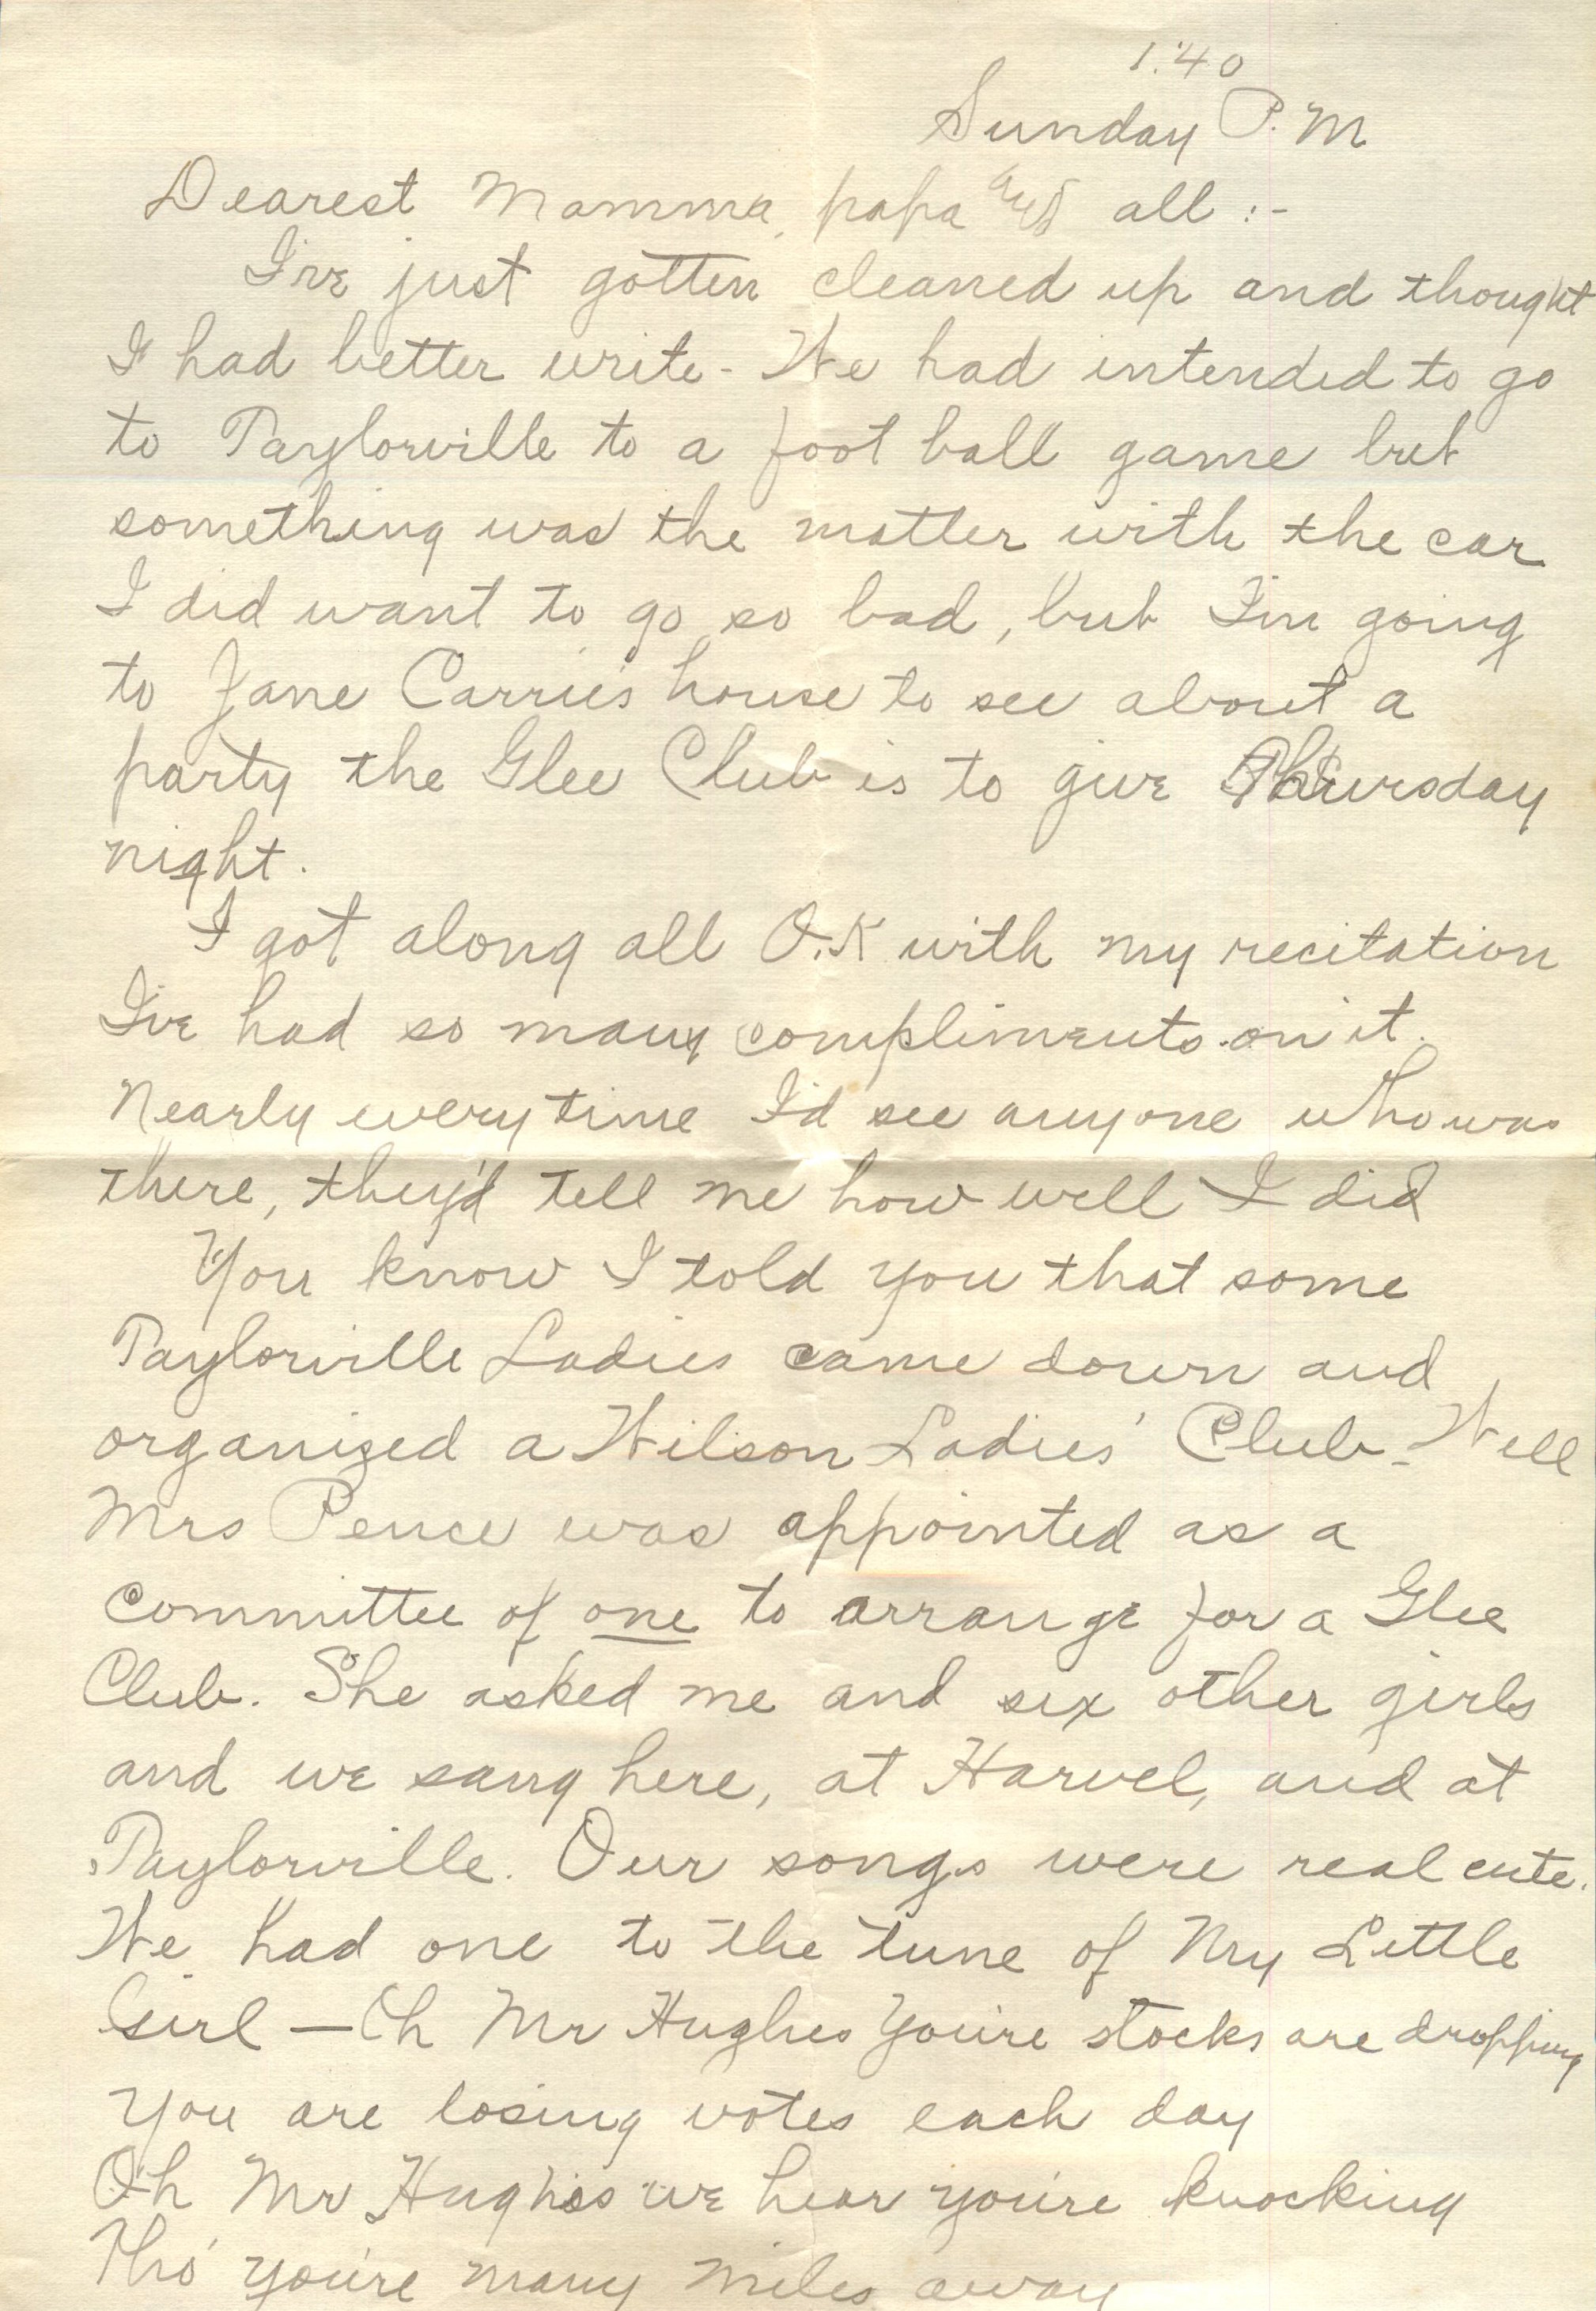 1:40
Sunday P.M
Dearest Mamma, papa and all :-
I've just gotten cleaned up and thought
I had better write - We had intended to go
to Taylorville to a foot ball game but
something was the matter with the car
I did want to go so bad, but I'm going
to Jane Carrie's house to see about a
party the Glee Club is to give Thursday
night.
I got along all O.K with my recitation
I've had so many compliments on it.
Nearly every time I'd see anyone who was
there, they'd tell me how well I did
You know I told you that some
Taylorville Ladies came down and
organized a Wilson Ladies' Club - Well
Mrs Pence was appointed as a
committee of one to arrange for a Glee
Club. She asked me and six other girls
and we sang here, at Harvel, and at
Taylorville. Our songs were real cute.
We had one to the tune of My Little
Girl — Oh Mr Hughes You're stocks are dropping
You are losing votes each day
Oh Mr Hughes we hear you're knocking
Tho' you're many miles away